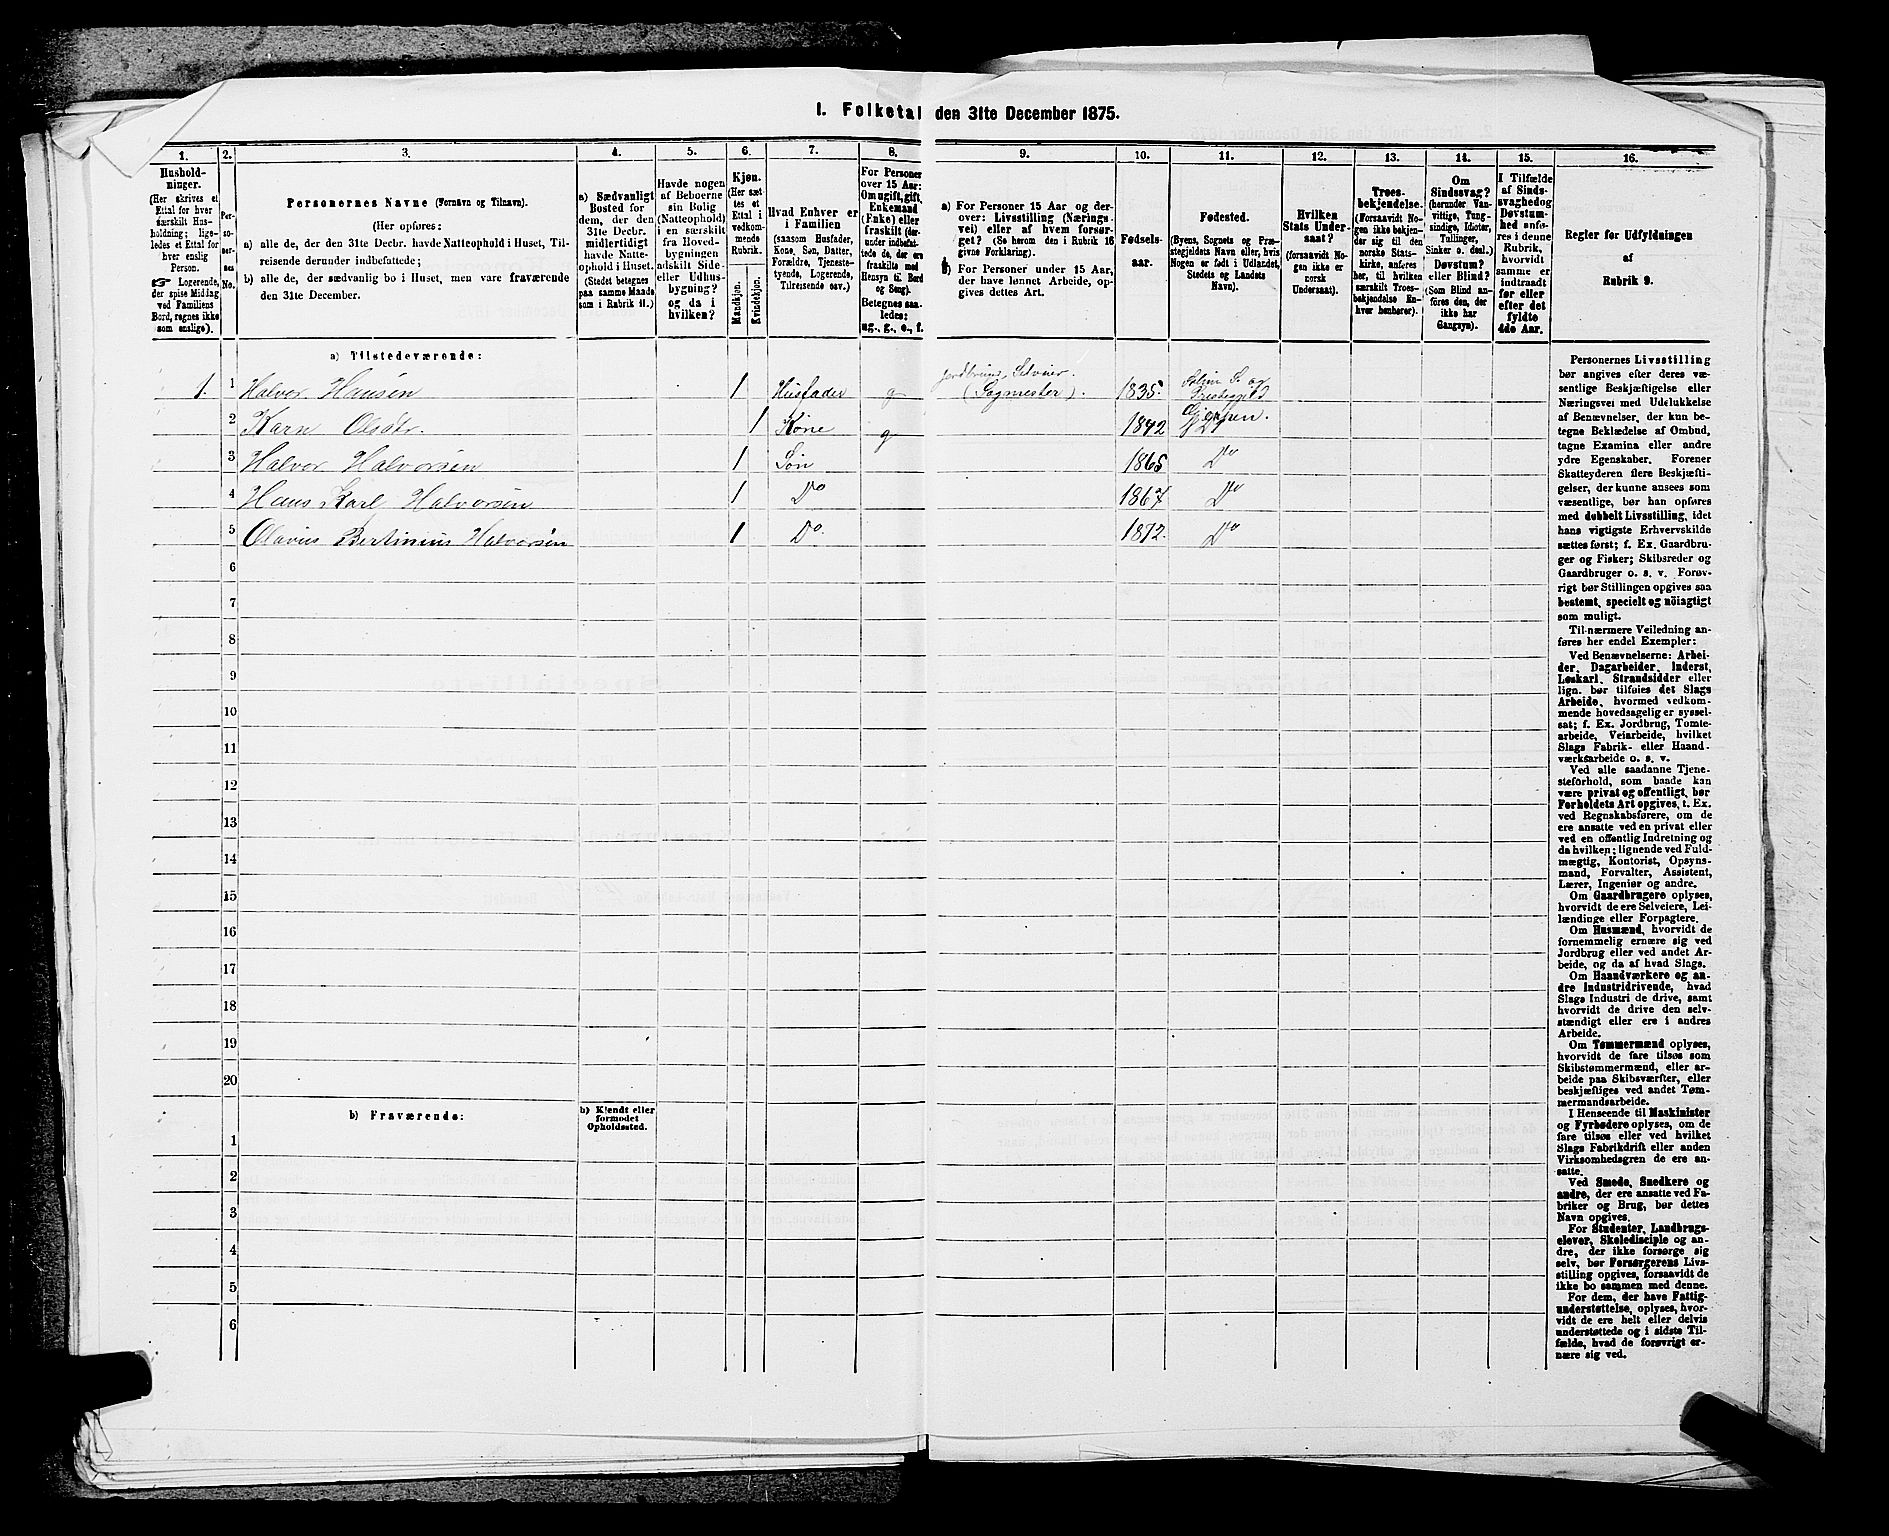 1. Folketal den 31te December 1875.
1.
Hushold-
ninger.
(Her skrives et
Ettal for hver
særskilt Hus-
holdning; lige-
ledes et Ettal for
hver enslig
Person.
☞ Logerende,
der spise Middag
ved Familiens
Bord, regnes ikke
som enslige).
2.
Per-
so-
ner-
nes
No.
3.
Personernes Navne (Fornavn og Tilnavn).
(Her opføres:
a) alle de, der den 31te Decbr. havde Natteophold i Huset, Til-
reisende derunder indbefattede;
b) alle de, der sædvanlig bo i Huset, men vare fraværende
den 31te December.
4.
a) Sædvanligt
Bosted for
dem, der den
31te Decbr.
midlertidigt
havde Natte-
ophold i Huset.
(Stedet betegnes
paa samme Maade
som i Rubrik 11.)
5.
Havde nogen
af Beboerne
sin Bolig
(Natteophold)
i en særskilt
fra Hoved-
bygningen
adskilt Side-
eller Udhus-
bygning?
og da i
hvilken?
6.
Kjøn.
(Her sæt-
tes et
Ettal i
vedkom-
mende
Rubrik.
Mandkjøn.
Kvindekjøn.
7.
Hvad Enhver er
i Familien
(saasom Husfader,
Kone, Søn, Datter,
Forældre, Tjeneste-
tyende, Logerende,
Tilreisende osv.)
8.
For Personer
over 15 Aar:
Om ugift, gift,
Enkemand
(Enke) eller
fraskilt (der-
under indbefat-
tede de, der ere
fraskilte med
Hensyn til Bord
og Seng).
Betegnes saa-
ledes:
ug., g., e., f.
9.
a) For Personer 15 Aar og der-
over: Livsstilling (Nærings-
vei) eller af hvem forsør-
get? (Se herom den i Rubrik 16
givne Forklaring).
b) For Personer under 15 Aar,
der have lønnet Arbeide, op-
gives dettes Art.
10.
Fødsels-
aar.
11.
Fødested.
(Byens, Sognets og Præ-
stegjeldets Navn eller, hvis
Nogen er født i Udlandet,
Stedets og Landets
Navn).
12.
Hvilken
Stats Under-
saat?
(forsaavidt No-
gen ikke er
norsk
Undersaat).
13.
Troes-
bekjendelse.
(Forsaavidt No-
gen ikke bekjen-
der sig til den
norske Stats-
kirke, anføres
her, til hvilken
særskilt Troes-
bekjendelse En-
hver henhører).
14.
Om
Sindssvag?
(herunder Van-
vittige, Tung-
sindige, Idioter,
Tullinger,
Sinker o. desl.)
Døvstum?
eller Blind?
(Som Blind an-
føres den, der
ikke har
Gangsyn).
15.
I Tilfælde
af Sinds-
svaghed og
Døvstum-
hed anfø-
res i denne
Rubrik,
hvorvidt
samme er
indtraadt
før eller
efter det
fyldte
4de Aar.
16.
Regler for Udfyldningen
af
Rubrik 9.
a) Tilstedeværende:
1. 1 Halvor Hansen 1 Husfader g Jordbrug, Selveier. (Sagmester). 1835. Prestegjld
2 Karn Olsdtr. 1 Kone g 1842 Do
3 Halvor Halvorsen 1 Søn 1865 Do
4 Hans Karl Halvorsen 1 Do 1867 Do
5 Olavus Bertinius Halvorsen 1 Do. 1872. Do
6
7
8
9
10
11
12
13
14
15
16
17
18
19
20
b) Fraværende:
b) Kjendt eller
formodet
Opholdssted.
1
2
3
4
5
6
Personernes Livsstilling
bør angives efter deres væ-
sentlige Beskjæftigelse eller
Næringsvei med Udelukkelse
af Benævnelser, der kun be-
tegne Beklædelse af Ombud,
tagne Examina eller andre
ydre Egenskaber. Forener
Skatteyderen flere Beskjæfti-
gelser, der kunne ansees som
væsentlige, bør han opføres
med dobbelt Livsstilling, idet
hans vigtigste Erhvervskilde
sættes først; f. Ex. Gaardbru-
ger og Fisker; Skibsreder og
Gaardbruger o. s. v. Forøv-
rigt bør Stillingen opgives saa
bestemt, specielt og nöiagtigt
som muligt.
Til nærmere Veiledning an-
føres her endel Exempler:
Ved Benævnelserne: Arbei-
der, Dagarbeider, Inderst,
Løskarl, Strandsidder eller
lign. bør tilføies det Slags
Arbeide, hvormed vedkom-
mende hovedsagelig er syssel-
sat; f. Ex. Jordbrug, Tomte-
arbeide, Veiarbeide, hvilket
Slags Fabrik- eller Haand-
værksarbeide o. s. v.
Ved alle saadanne Tjene-
steforhold, som baade kan
være privat og offentligt, bør
Forholdets Art opgives, t. Ex.
ved Regnskabsførere, om de
ere ansatte ved en privat eller
ved en offentlig Indretning og
da hvilken; lignende ved Fuld-
mægtig, Kontorist, Opsyns-
mand, Forvalter, Assistent,
Lærer, Ingeniør og andre.
Om Gaardbrugere oplyses,
hvorvidt de ere Selveiere, Lei-
lændinge eller Forpagtere.
Om Husmænd, hvorvidt de
fornemmelig ernære sig ved
Jordbrug eller ved andet Ar-
beide, og da af hvad Slags.
Om Haandværkere og an-
dre Industridrivende, hvad
Slags Industri de drive, samt
hvorvidt de drive den selv-
stændigt eller ere i andres
Arbeide.
Om Tømmermænd oplyses,
hvorvidt de fare tilsøs som
Skibstømmermænd, eller ar-
beide paa Skibsværfter, eller
beskjæftiges ved andet Tøm-
mermandsarbeide.
I Henseende til Maskinister
og Fyrbødere oplyses, om de
fare tilsøs eller ved hvilket
Slags Fabrikdrift eller anden
Virksomhedsgren de ere an-
satte.
Ved Smede, Snedkere og
andre, der ere ansatte ved Fa-
briker og Brug, bør dettes
Navn opgives.
For Studenter, Landbrugs-
elever, Skoledisciple og an-
dre, der ikke forsørge sig
selv, bør Forsørgerens Livs-
stilling opgives, forsaavidt de
ikke bo sammen med denne.
For dem, der have Fattig-
understøttelse, oplyses, hvor-
vidt de ere helt eller delvis
understøttede og i sidste Til-
fælde, hvad de forøvrigt er-
nære sig ved.